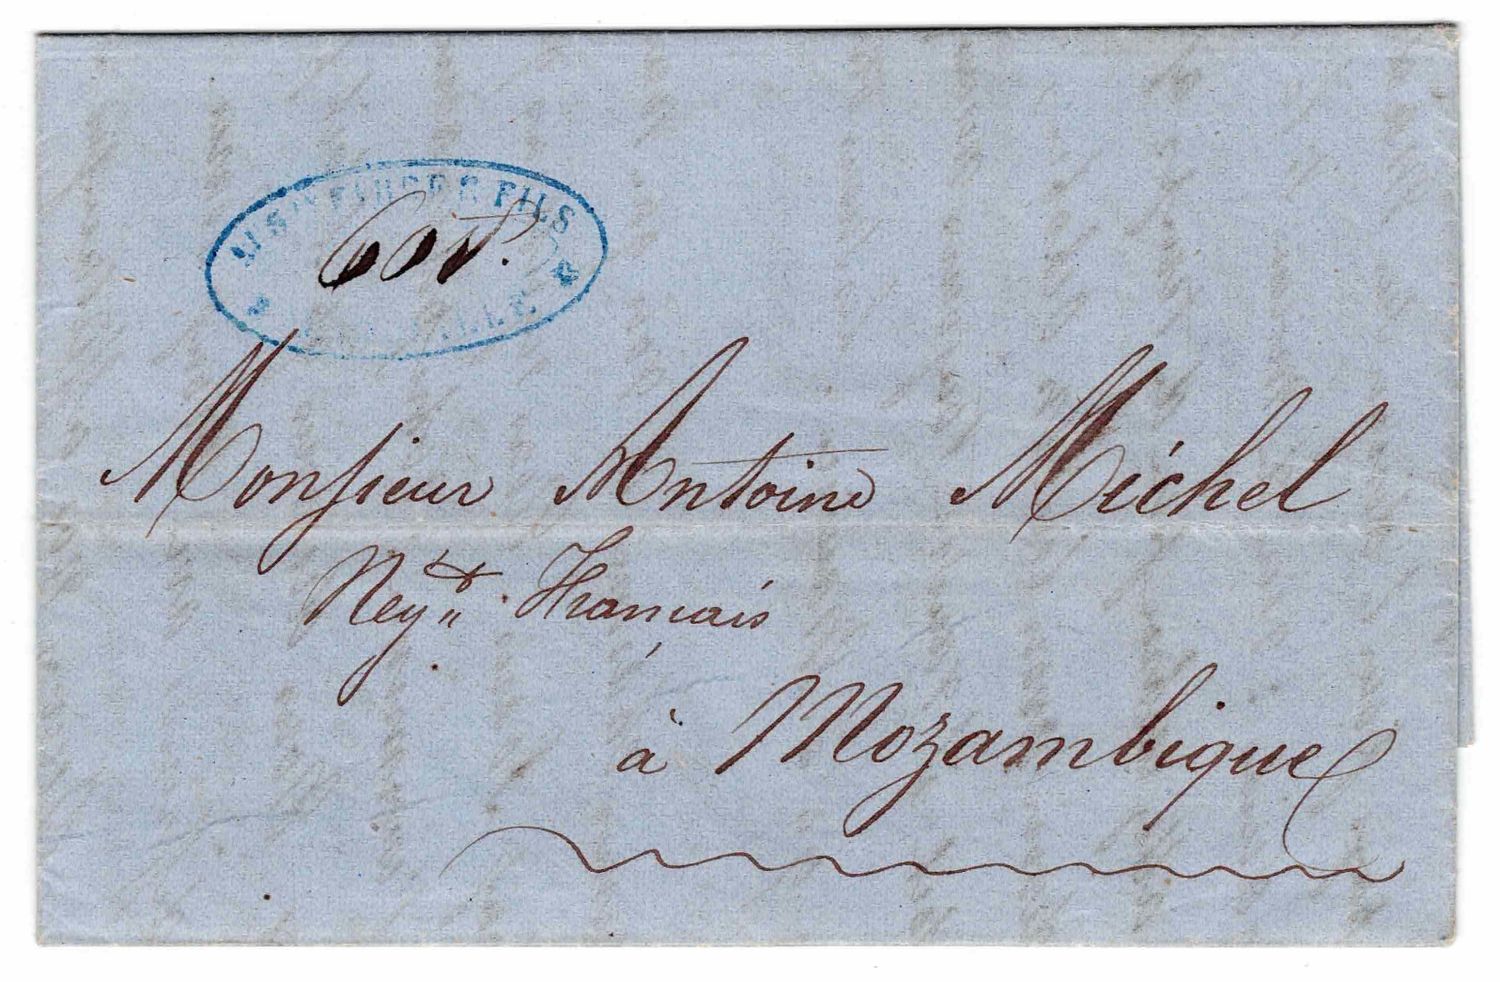 FILS
Monsieur Antoine Michel
Neg.t Français
à Mozambique